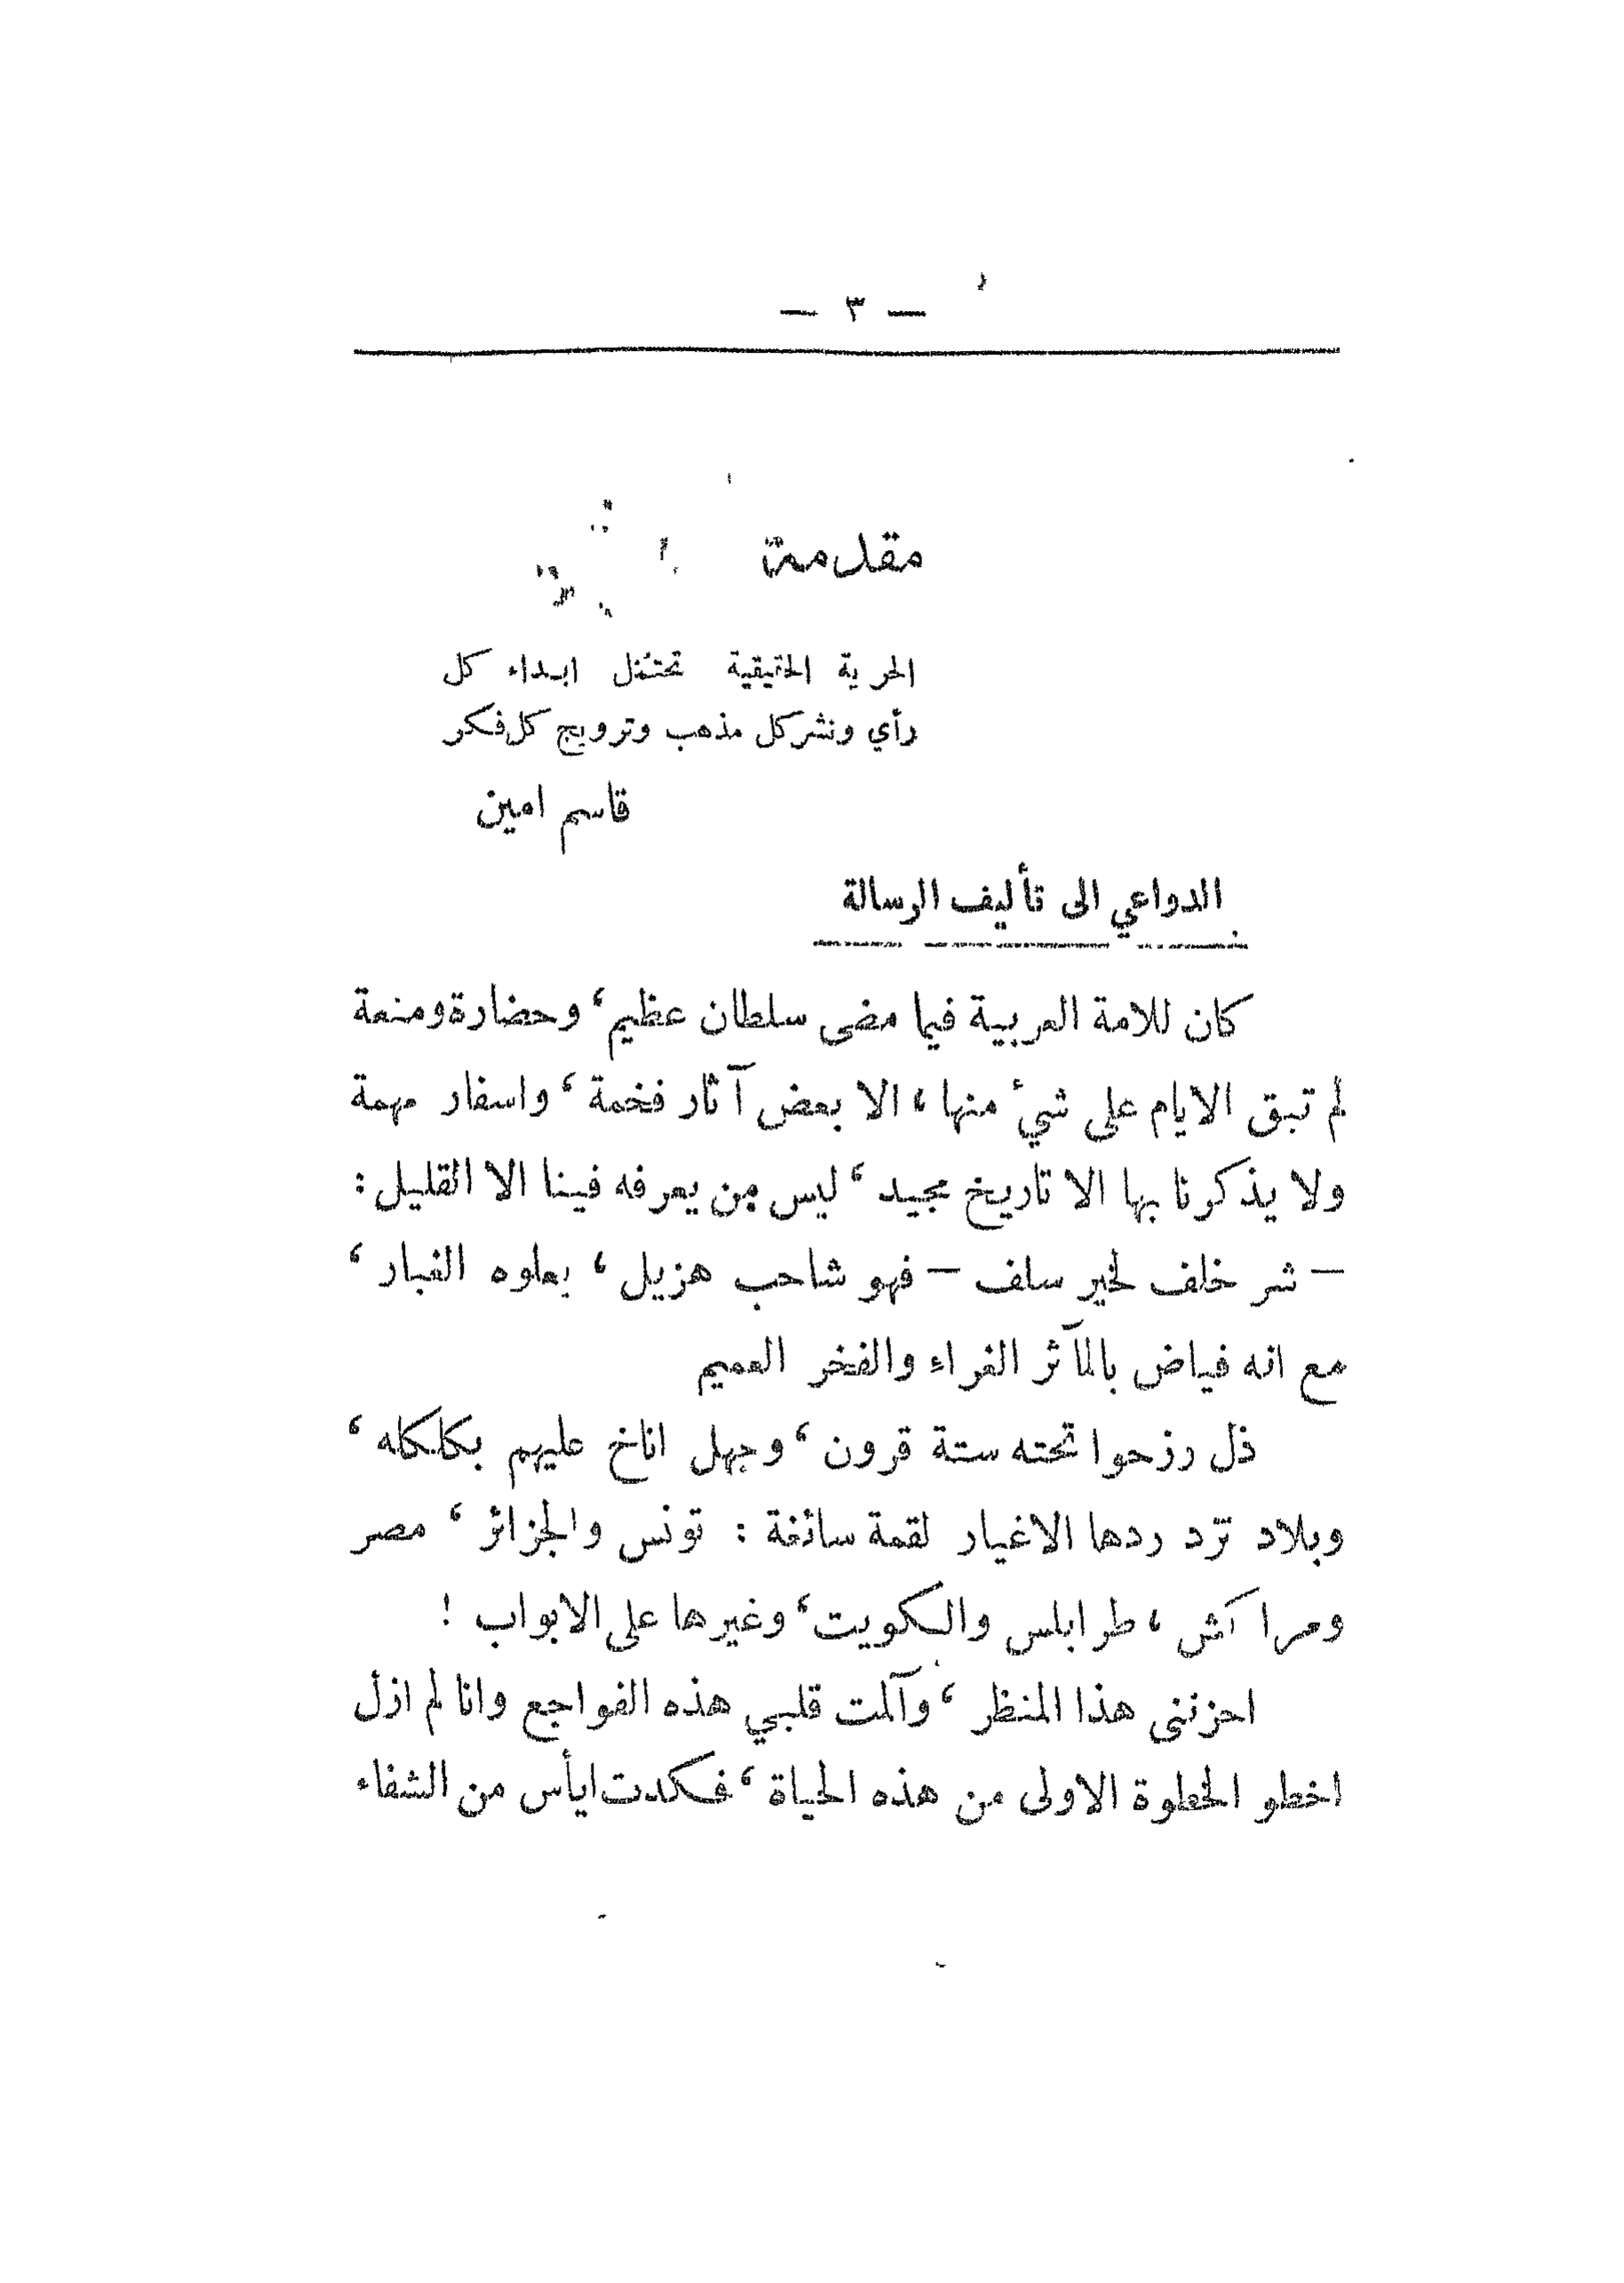 — ٣ —
مقدمة
الحرية الحقيقية تحتمل ابداء كل
رأي ونشر كل مذهب وترويج كل فكر
قاسم امين
الدواعي الى تأليف الرسالة
كان للامة العربية فيما مضى سلطان عظيم، وحضارة ومنعة
لم تبق الايام على شيء منها، الا بعض آثار فخمة، واسفار مهمة
ولا يذكرنا بها الا تاريخ مجيد، ليس من يعرفه فينا الا القليل:
— شر خلف لخير سلف — فهو شاحب هزيل، يعلوه الغبار،
مع انه فياض بالمآثر الغراء والفخر العميم
ذل رزحوا تحته ستة قرون، وجهل اناخ عليهم بكلكله،
وبلاد تزد ردها الاغيار لقمة سائغة: تونس والجزائر، مصر
ومراكش، طرابلس والكويت، وغيرها على الابواب!
احزنني هذا المنظر، وآلمت قلبي هذه الفواجع وانا لم ازل
اخطو الخطوة الاولى من هذه الحياة، فكدت ايأس من الشفاء